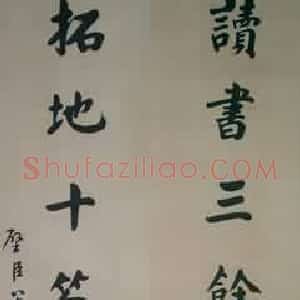 讀書三餘
拓地十笏
聲臣
Shufaziliao.com